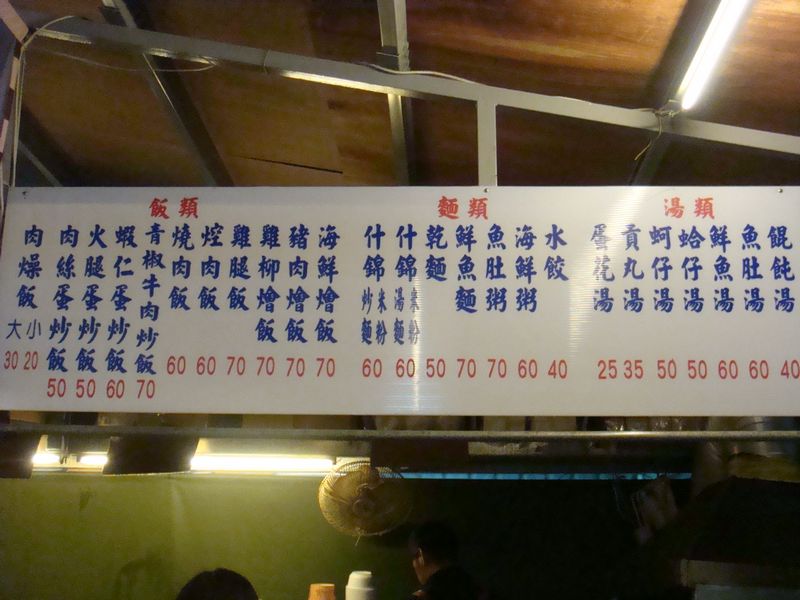 飯類
肉燥飯 大30 小20
肉絲蛋炒飯 50
火腿蛋炒飯 50
蝦仁蛋炒飯 60
青椒牛肉炒飯 70
燒肉飯 60
焢肉飯 60
雞腿飯 70
雞柳燴飯 70
豬肉燴飯 70
海鮮燴飯 70
麵類
什錦炒麵 米粉 60
什錦湯麵 米粉 60
乾麵 50
鮮魚麵 70
魚肚粥 70
海鮮粥 60
水餃 40
湯類
蛋花湯 25
貢丸湯 35
蚵仔湯 50
蛤仔湯 50
鮮魚湯 60
魚肚湯 60
餛飩湯 40